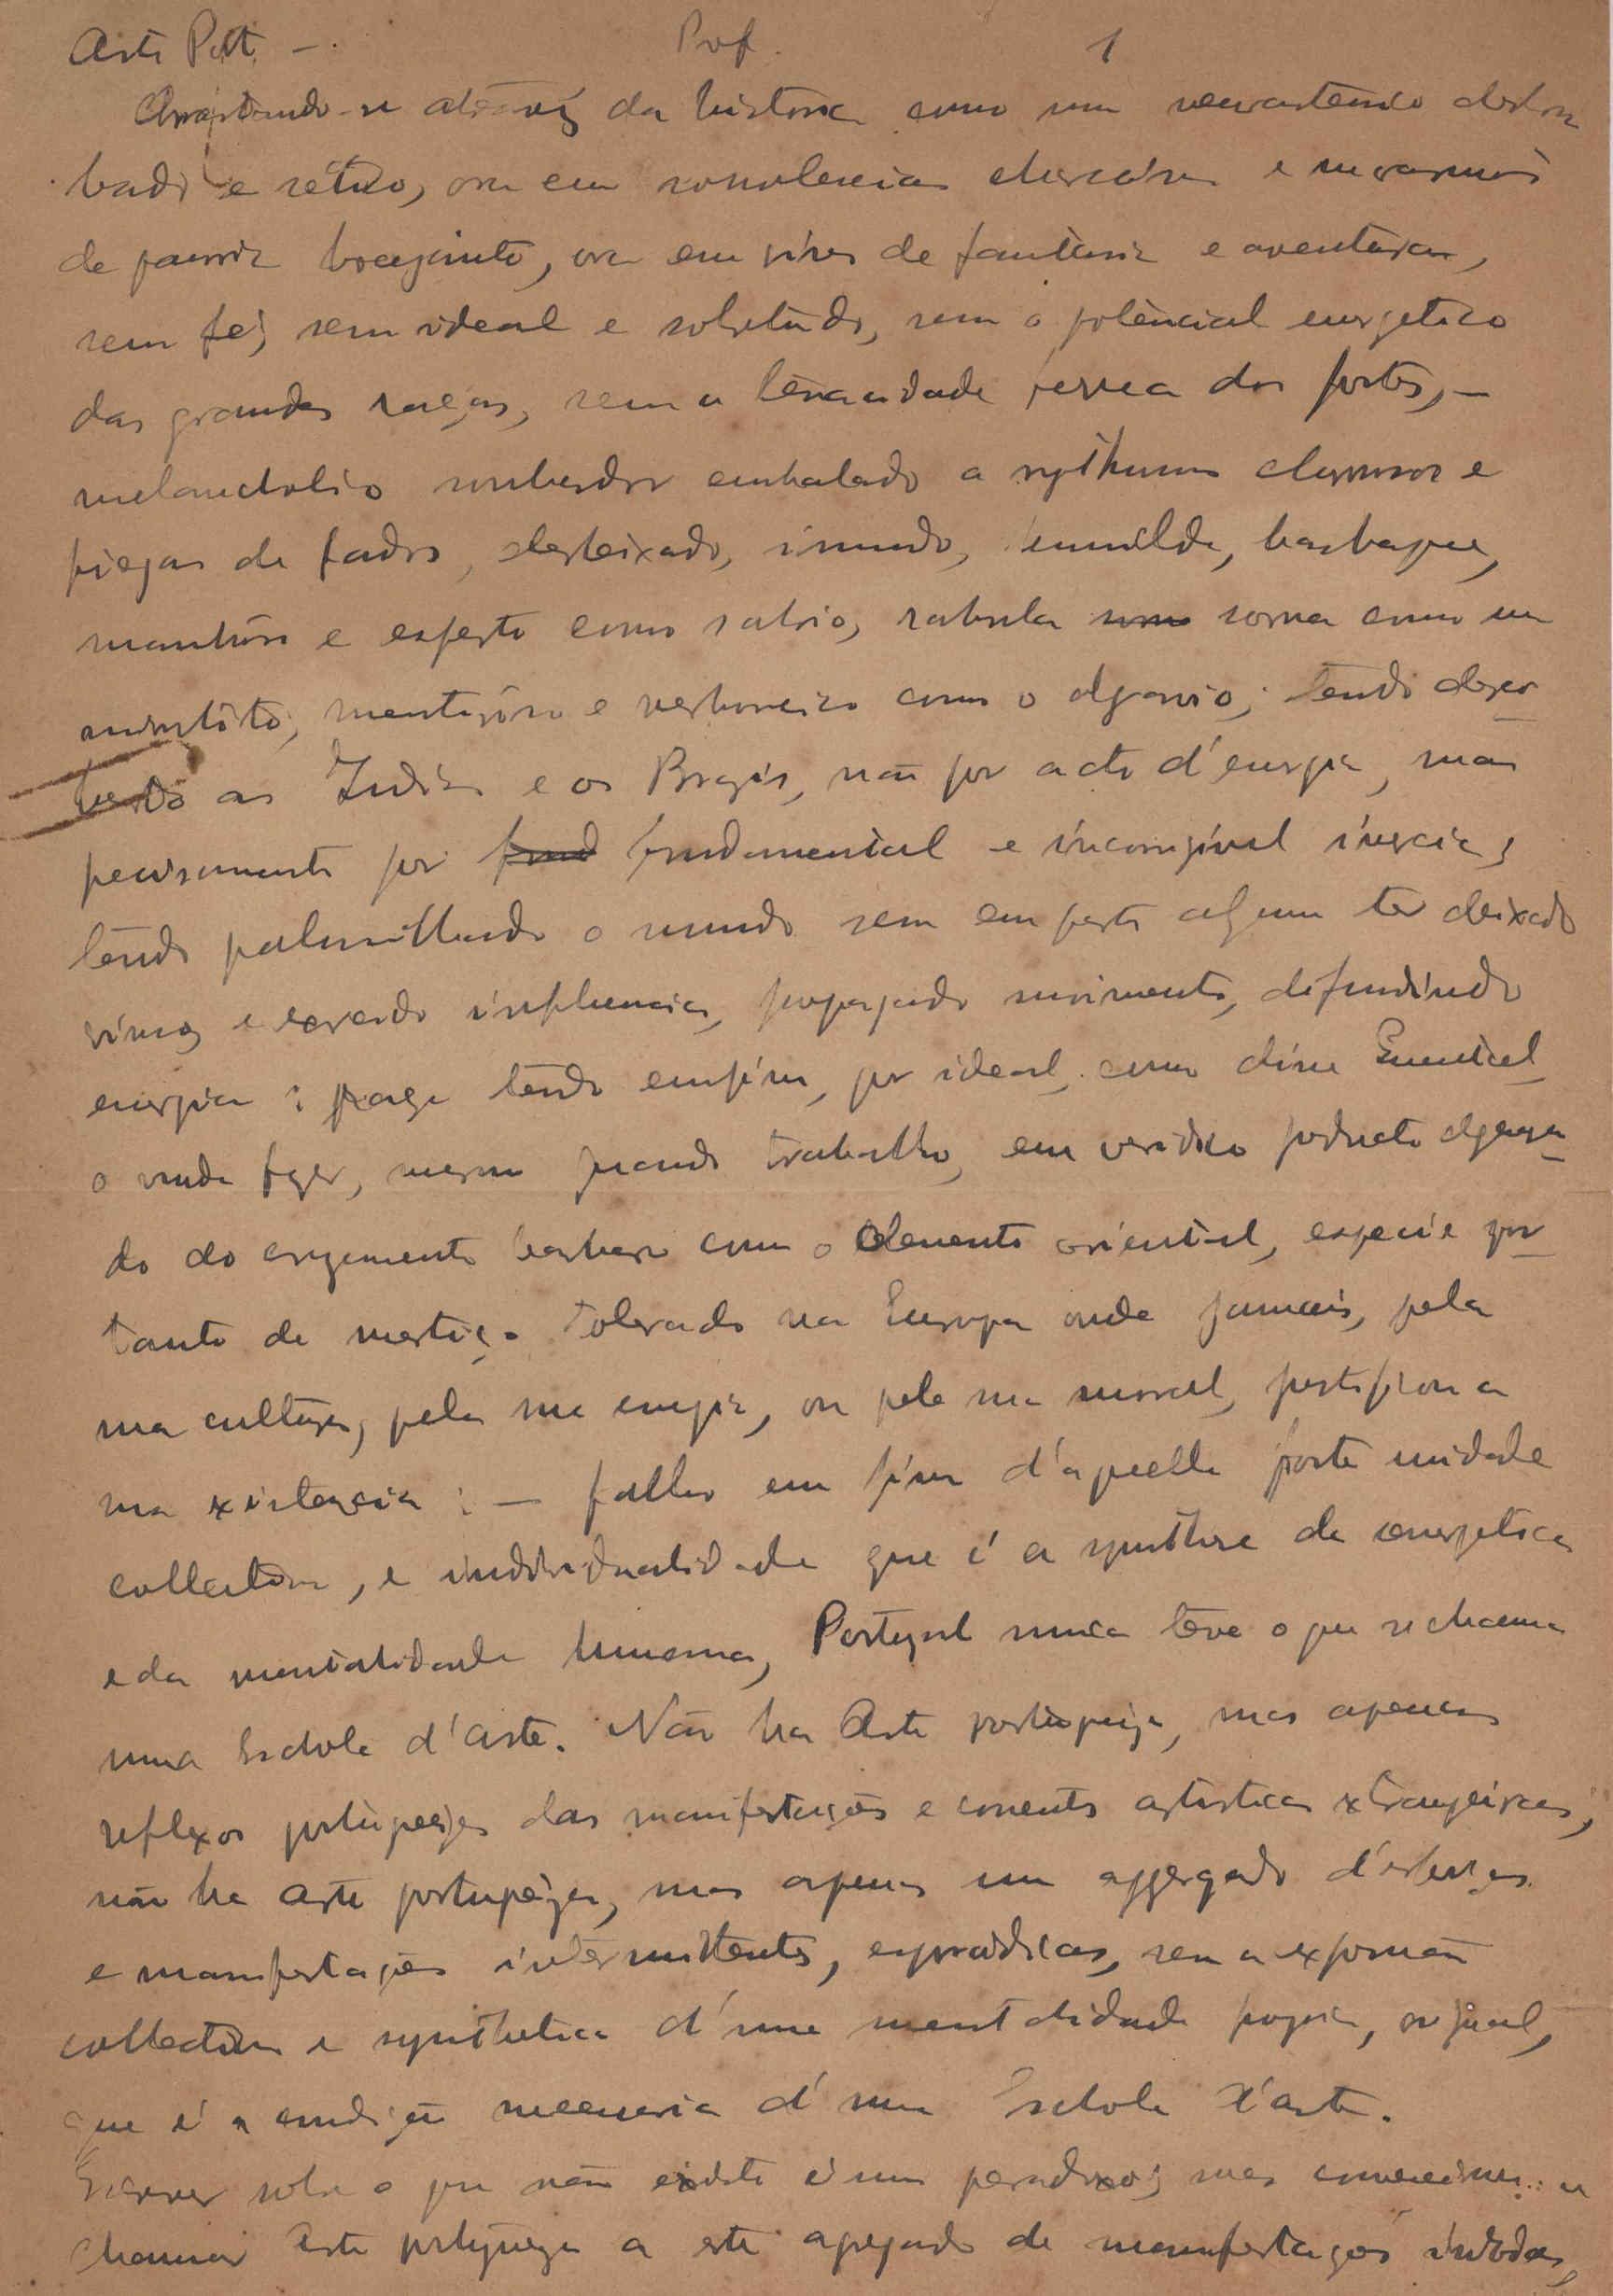 Arte Port. — Prof. 1
Arrastando-se através da historia como um neurastenico destram
bado e rétivo, ora em somnolencias e marasmos
de bocejante, ora em de fantasia e aventuras,
sem fé, sem ideal e sobretudo, sem o potèncial energetico
das grandes raças, sem a tenacidade ferrea dos fortes, —
melancholico sonhador embalado a rythmos e
piegas de fados, desleixado, immundo, humilde, basbaque,
manhôso e esperto como saloio, rabula sorna como um
mentirôso e como o algarvio; tendo desco
berto as Indias e os Brazis, não por acto d'energia, mas
precisamente por fundamental e incorrigivel inercia;
tendo palmilhado o mundo sem em parte alguma ter deixado
e exercido influencia, propagado movimento, difundindo
energia; tendo emfim, por ideal, como disse
o nada fazer, mesmo quando trabalha, em veridico producto
do do cruzamento barbaro com o elemento oriental, especie por
tanto de mestiço tolerado na Europa onde jamais, pela
sua cultura, pela sua energia, ou pela sua moral, justificou a
sua existencia: — falho em fim d'aquella forte unidade
collectiva, e individualidade que é a synthese da energetica
e da mentalidade humana, Portugal nunca teve o que se chama
uma Eschola d'Arte. Não ha Arte portugueza, mas apenas
reflexos portuguezes das manifestações e correntes artisticas extrangeiras;
não ha arte portugueza, mas apenas um aggregado d'esforços
e manifestações intermittentes, esporadicas, sem a expressão
collectiva e synthetica d'uma mentalidade propria, original,
que é a condição necessaria d'uma Eschola d'arte.
Escrever sobre o que não existe é um paradoxo; mas convencionou-se
chamar Arte portugueza a este agregado de manifestações